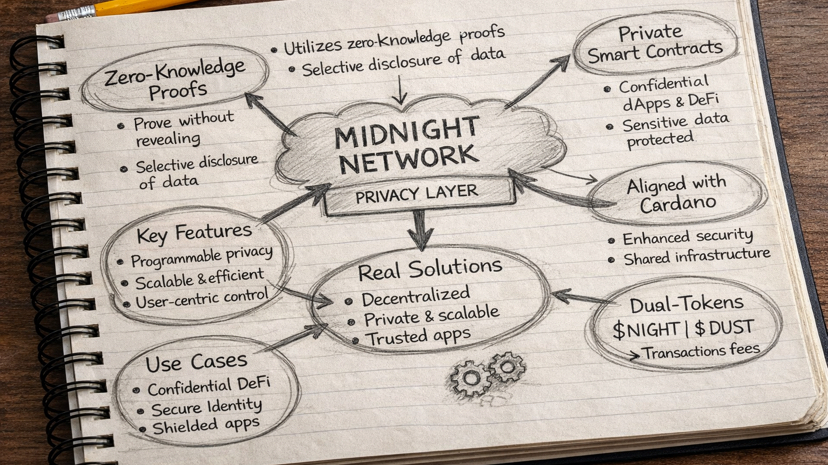 • Utilizes zero-knowledge proofs
• Selective disclosure of data
Zero-Knowledge
Proofs
• Prove without
revealing
• Selective disclosure
of data
MIDNIGHT
NETWORK
PRIVACY LAYER
Private
Smart Contracts
• Confidential
dApps & DeFi
• Sensitive data
protected
Aligned with
Cardano
• Enhanced security
• Shared infrastructure
Key Features
• Programmable privacy
• Scalable & efficient
• User-centric control
Real Solutions
• Decentralized
• Private & scalable
• Trusted apps
Dual-Tokens
$NIGHT | $DUST
→ Transactions fees
Use Cases
• Confidential DeFi
• Secure Identity
• Shielded apps